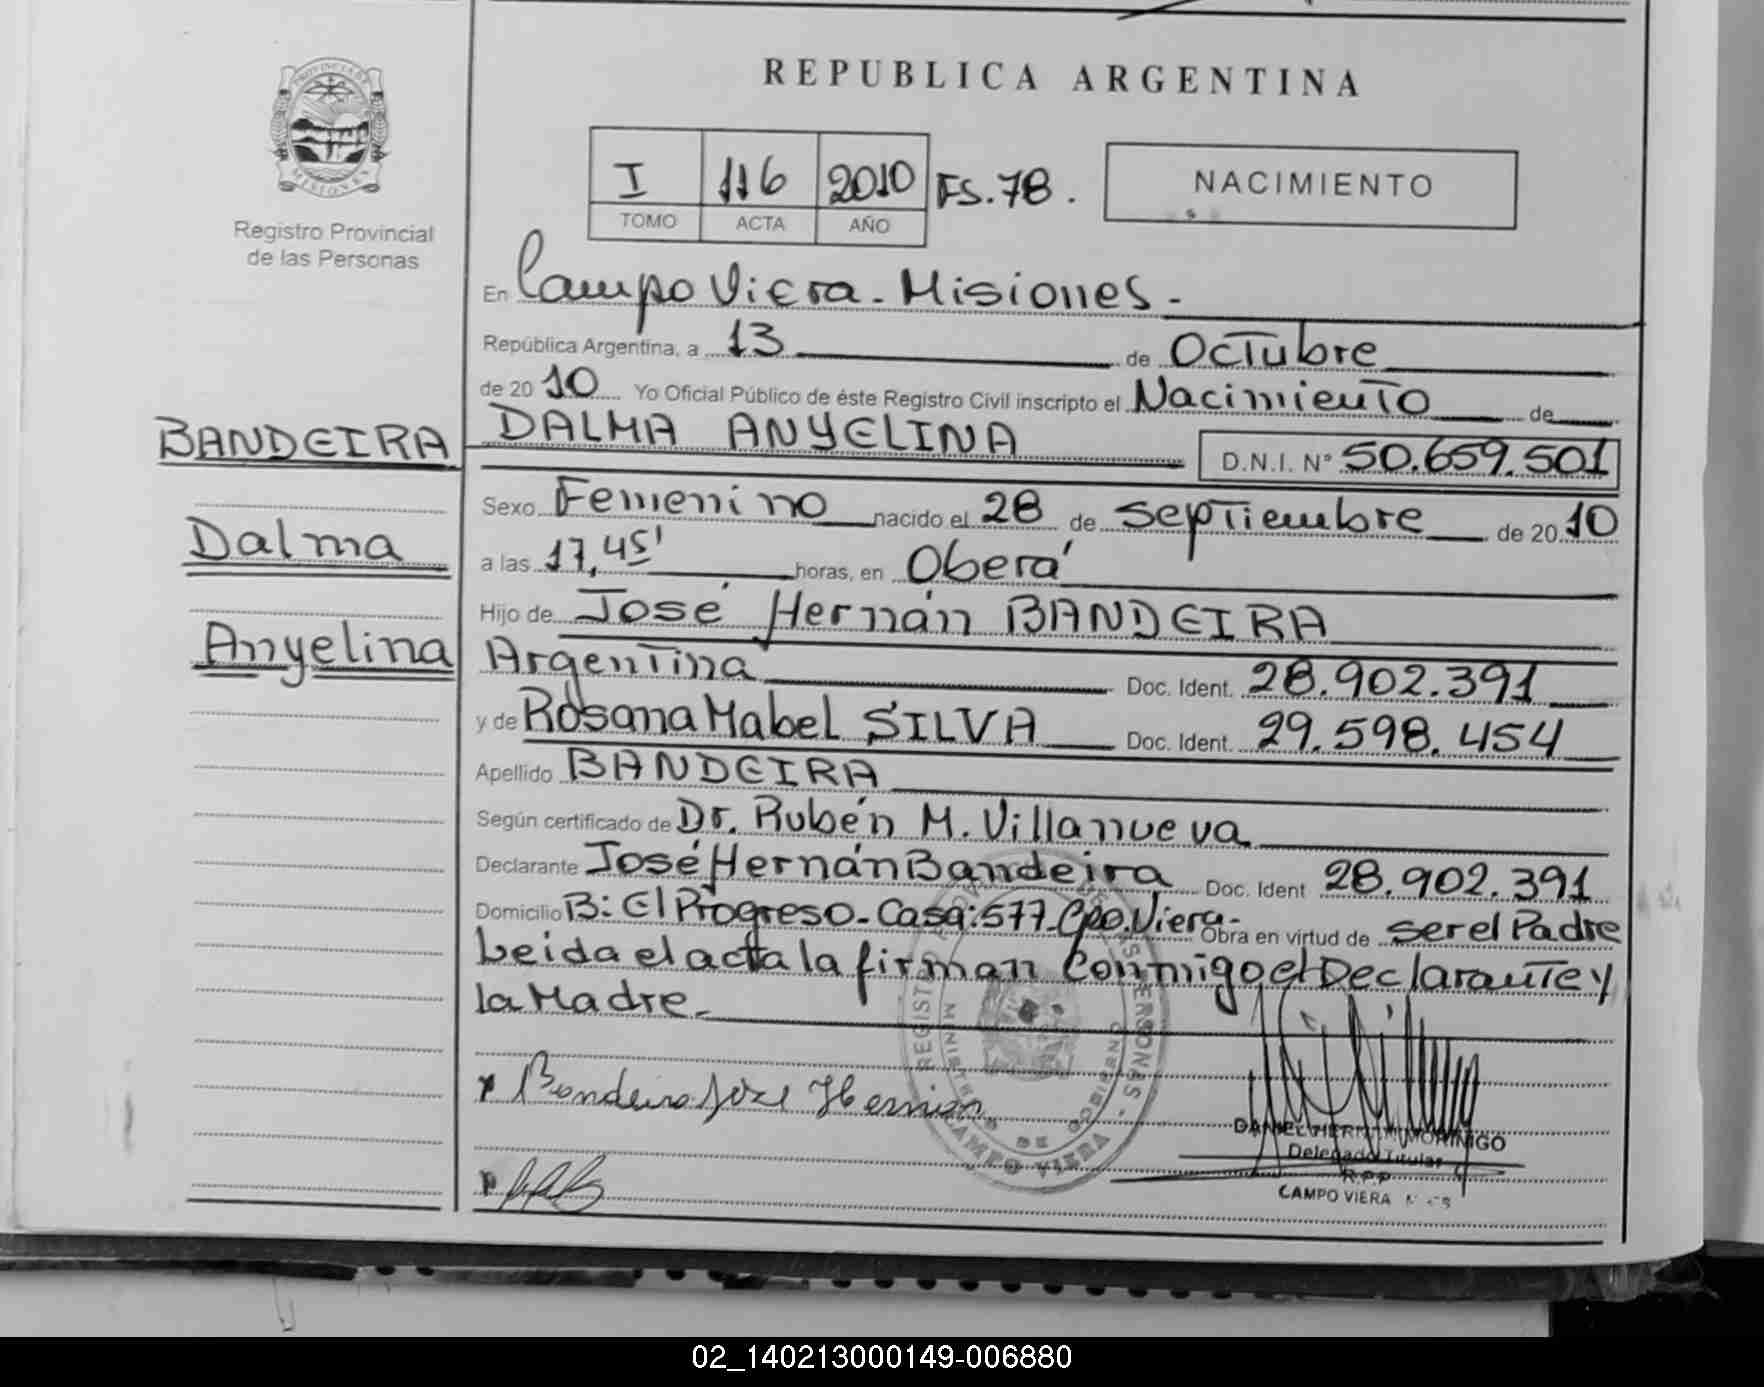 REPUBLICA ARGENTINA
PROVINCIA DE
MISIONES
Registro Provincial
de las Personas
I 116 2010 FS.78.
TOMO ACTA AÑO
NACIMIENTO
En Campo Viera - Misiones -
República Argentina, a 13 de Octubre
de 2010 Yo Oficial Público de éste Registro Civil inscripto el Nacimiento de
BANDEIRA
Dalma
Anyelina
DALMA ANYELINA D.N.I. N° 50.659.501
Sexo Femenino nacido el 28 de septiembre de 2010
a las 17,45' horas, en Oberá
Hijo de José Hernán BANDEIRA
Argentina Doc. Ident. 28.902.391
y de Rosana Mabel SILVA Doc. Ident. 29.598.454
Apellido BANDEIRA
Según certificado de Dr. Rubén M. Villanueva
Declarante José Hernán Bandeira Doc. Ident 28.902.391
Domicilio B: El Progreso - Casa: 577 - Cpo. Viera - Obra en virtud de ser el Padre
Leida el acta la firman Conmigo el Declarante y
la Madre.
Bandeira Jose Hernan
CAMPO VIERA
DANIEL HERNAN MORINIGO
Delegado Titular
R.P.P
CAMPO VIERA
02_140213000149-006880